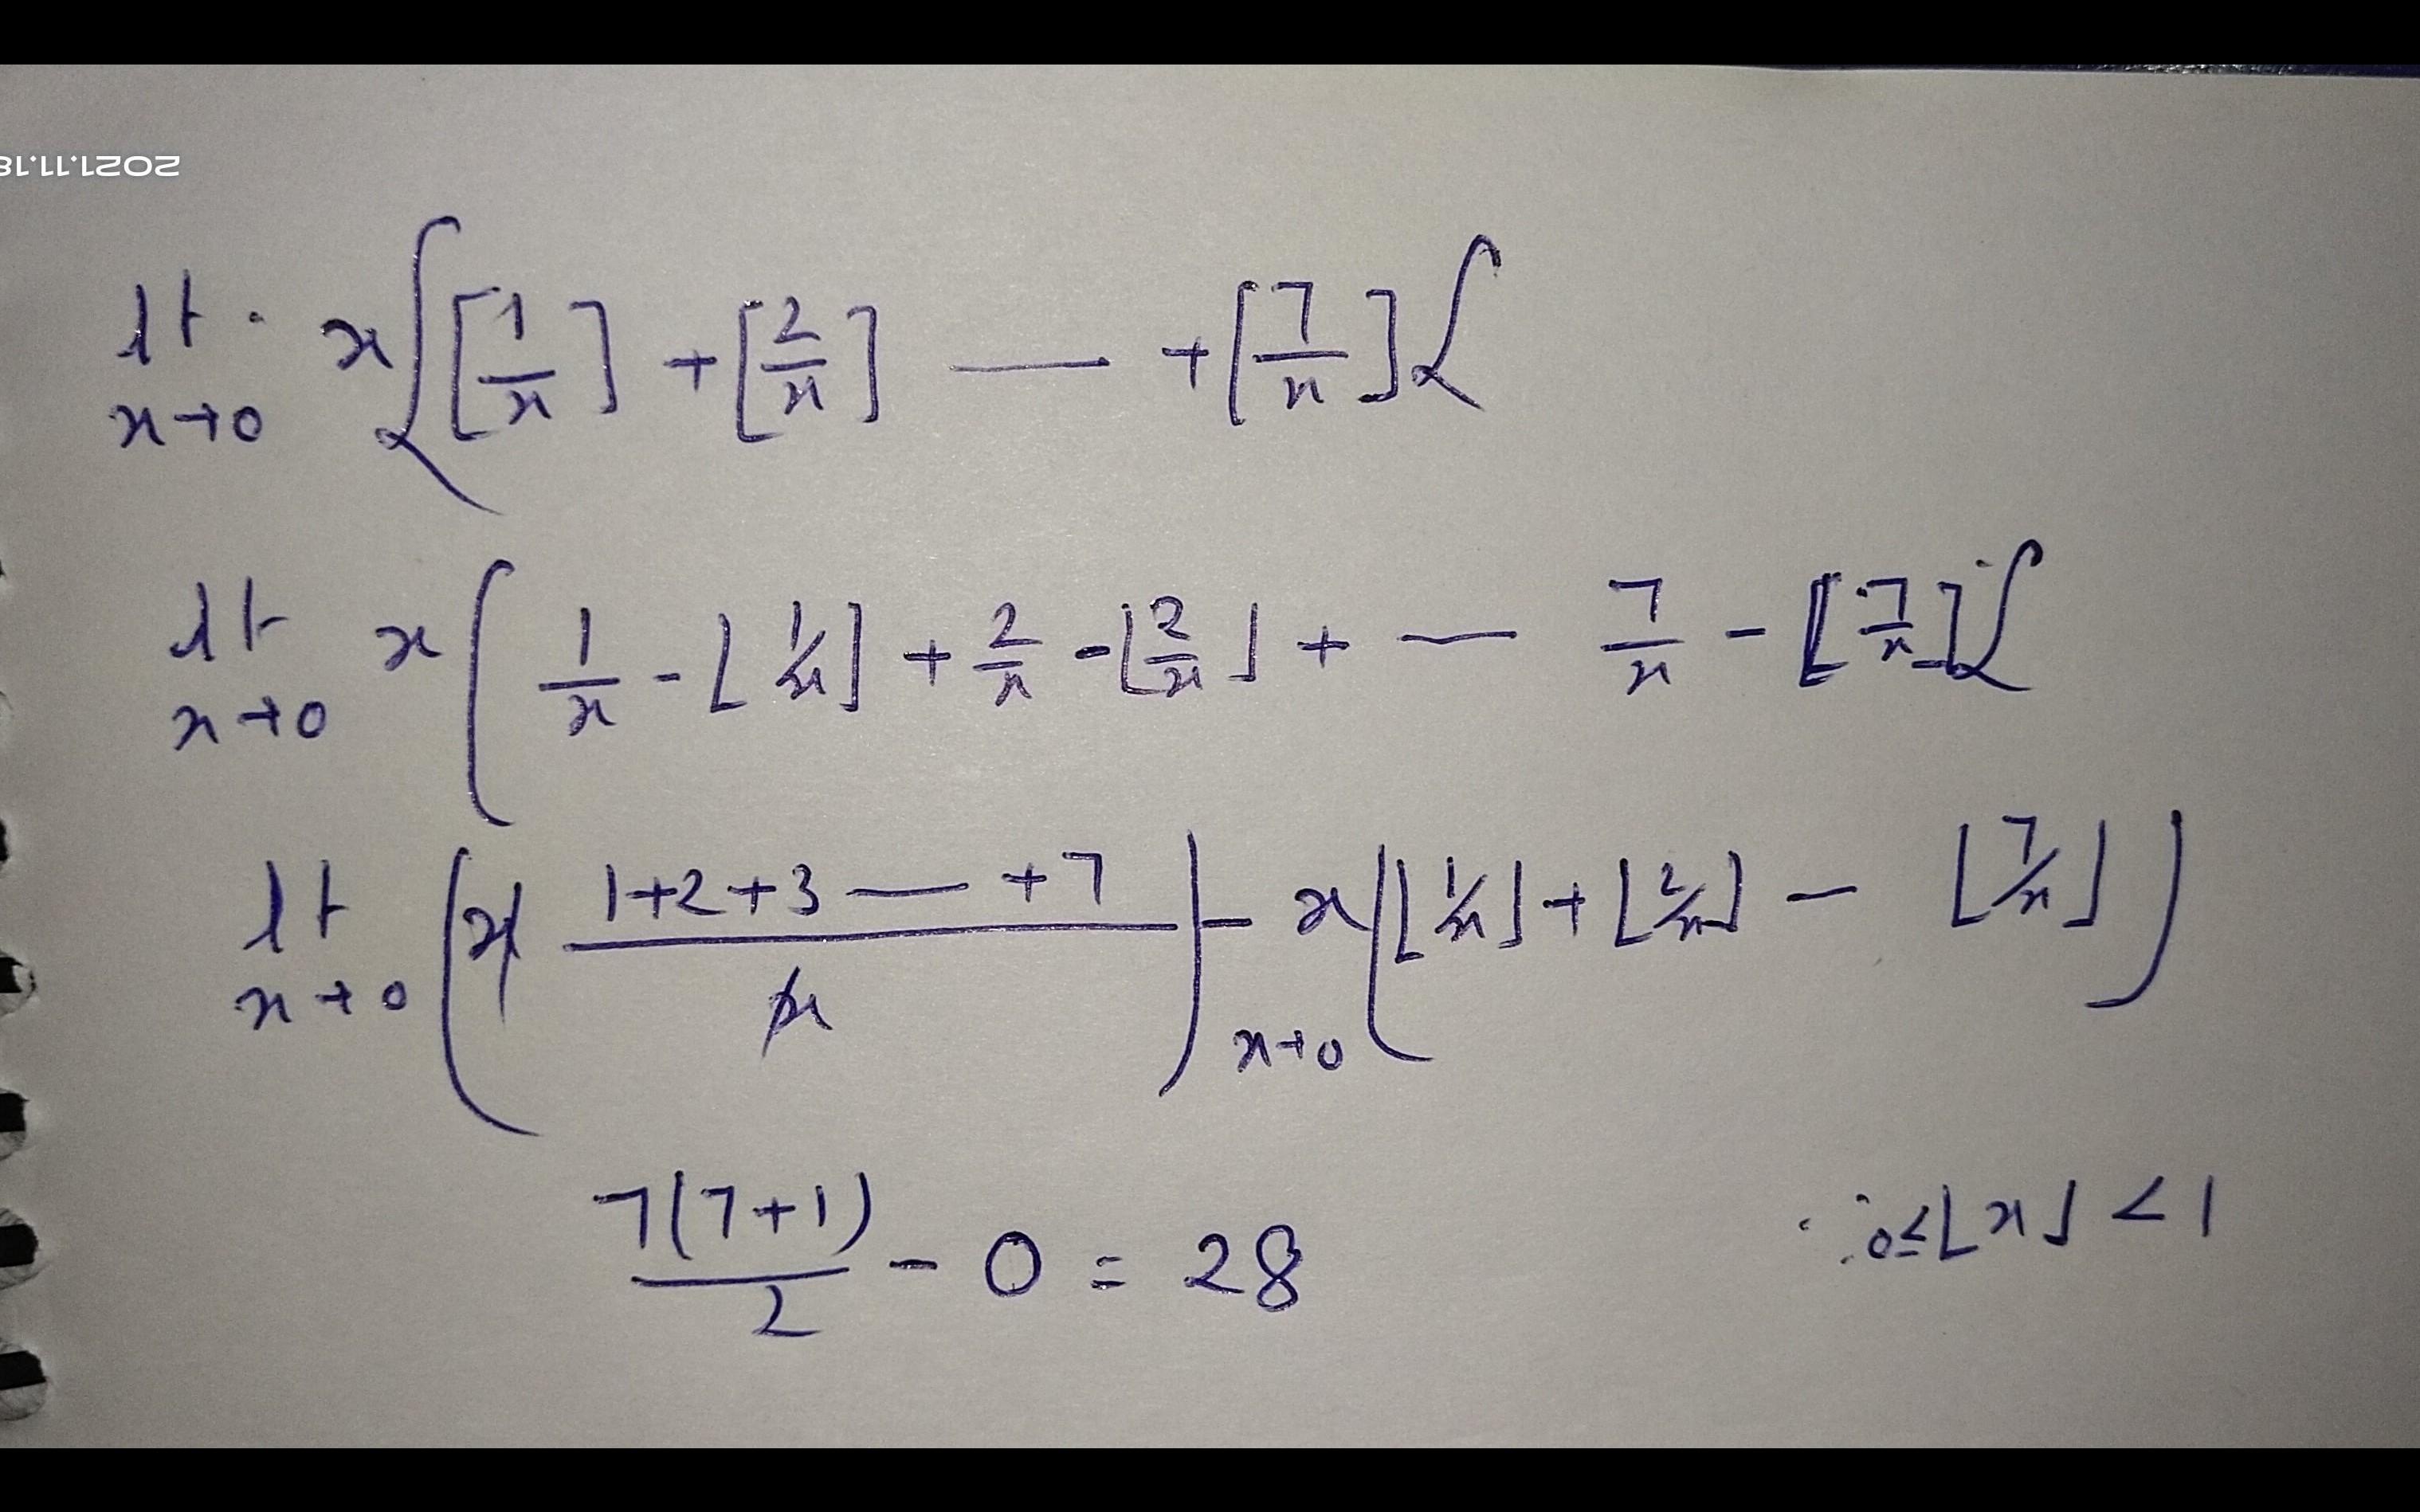 2021.11.18
lt x→0 x{[1/x] + [2/x] — + [7/x]}
lt x→0 x(1/x - ⌊1/x⌋ + 2/x - ⌊2/x⌋ + — 7/x - ⌊7/x⌋)
lt x→0 (x (1+2+3 — +7)/x) - x→0 x(⌊1/x⌋ + ⌊2/x⌋ — ⌊7/x⌋)
7(7+1)/2 - 0 = 28 ∵ 0≤⌊x⌋ < 1